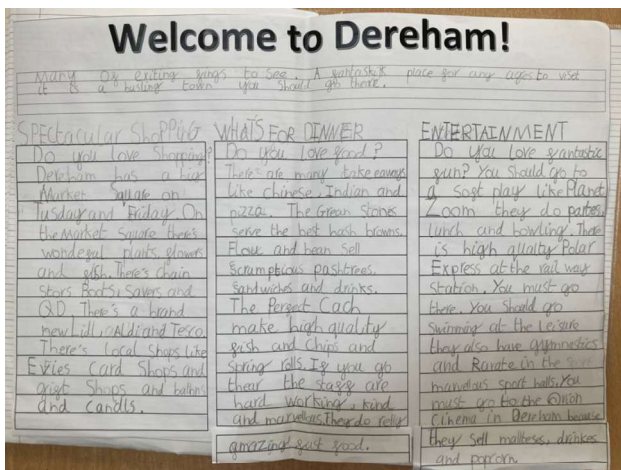 Welcome to Dereham!
Many of exiting things to see. A fantastik place for any ages to visit
it is a busling town you should go there.
SPECtacular ShoPPING
Do you love Shopping?
Dereham has a big
Market Square on
Tusday and Friday On
the Market Square there's
wondeful plants, flowers
and fish. There's chain
stors Boots, Savers and
QD. There's a brand
new Lill, Aldi and Tesco.
There's local shops like
Evies Card Shops and
grift Shops and ballons
and Candls.
WHAT'S FOR DINNER
Do you love food?
There's are many take eaways
Like Chinese, Indian and
pizza. The Green Stores
serve the best hash browns.
Flour and bean Sell
Scrumptious pashtrees,
Sandwiches and drinks.
The Perfect Cach
make high quality
fish and chips and
Spring rolls. If you go
thear the staff are
hard working, kind
and marvellous. They do relly
amazing fast food.
ENTERTAINMENT
Do you love frantastic
fun? You should go to
a soft play like Planet
Zoom they do parties,
lunch and bowling. There
is high quality Polar
Express at the rail way
station. You must go
there. You Should go
Swimming at the Leisure
they also have gymnestics
and Karate in the
marvallous sport halls. You
must go to the Orion
Cinema in Dereham because
they sell malltess, drinkes
and popcorn.